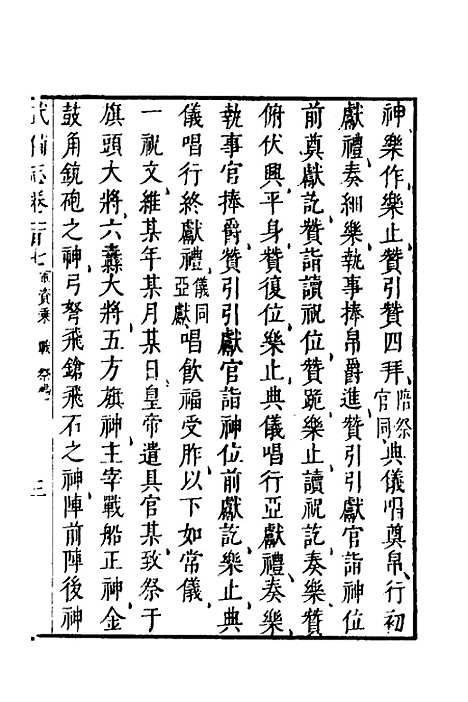 神樂作樂止贊引贊四拜陪祭官同典儀唱奠帛行初
獻禮奏細樂執事捧帛爵進贊引引獻官詣神位
前奠獻訖贊詣讀祝位贊跪樂止讀祝訖奏樂贊
俯伏興平身贊復位樂止典儀唱行亞獻禮奏樂
執事官捧爵贊引引獻官詣神位前獻訖樂止典
儀唱行終獻禮儀同亞獻唱飲福受胙以下如常儀
一祝文維某年某月某日皇帝遣具官某致祭于
旗頭大將六纛大將五方旗神主宰戰船正神金
鼓角銃砲之神弓弩飛鎗飛石之神陣前陣後神
武備志卷一百七 軍資乘 戰 祭 三